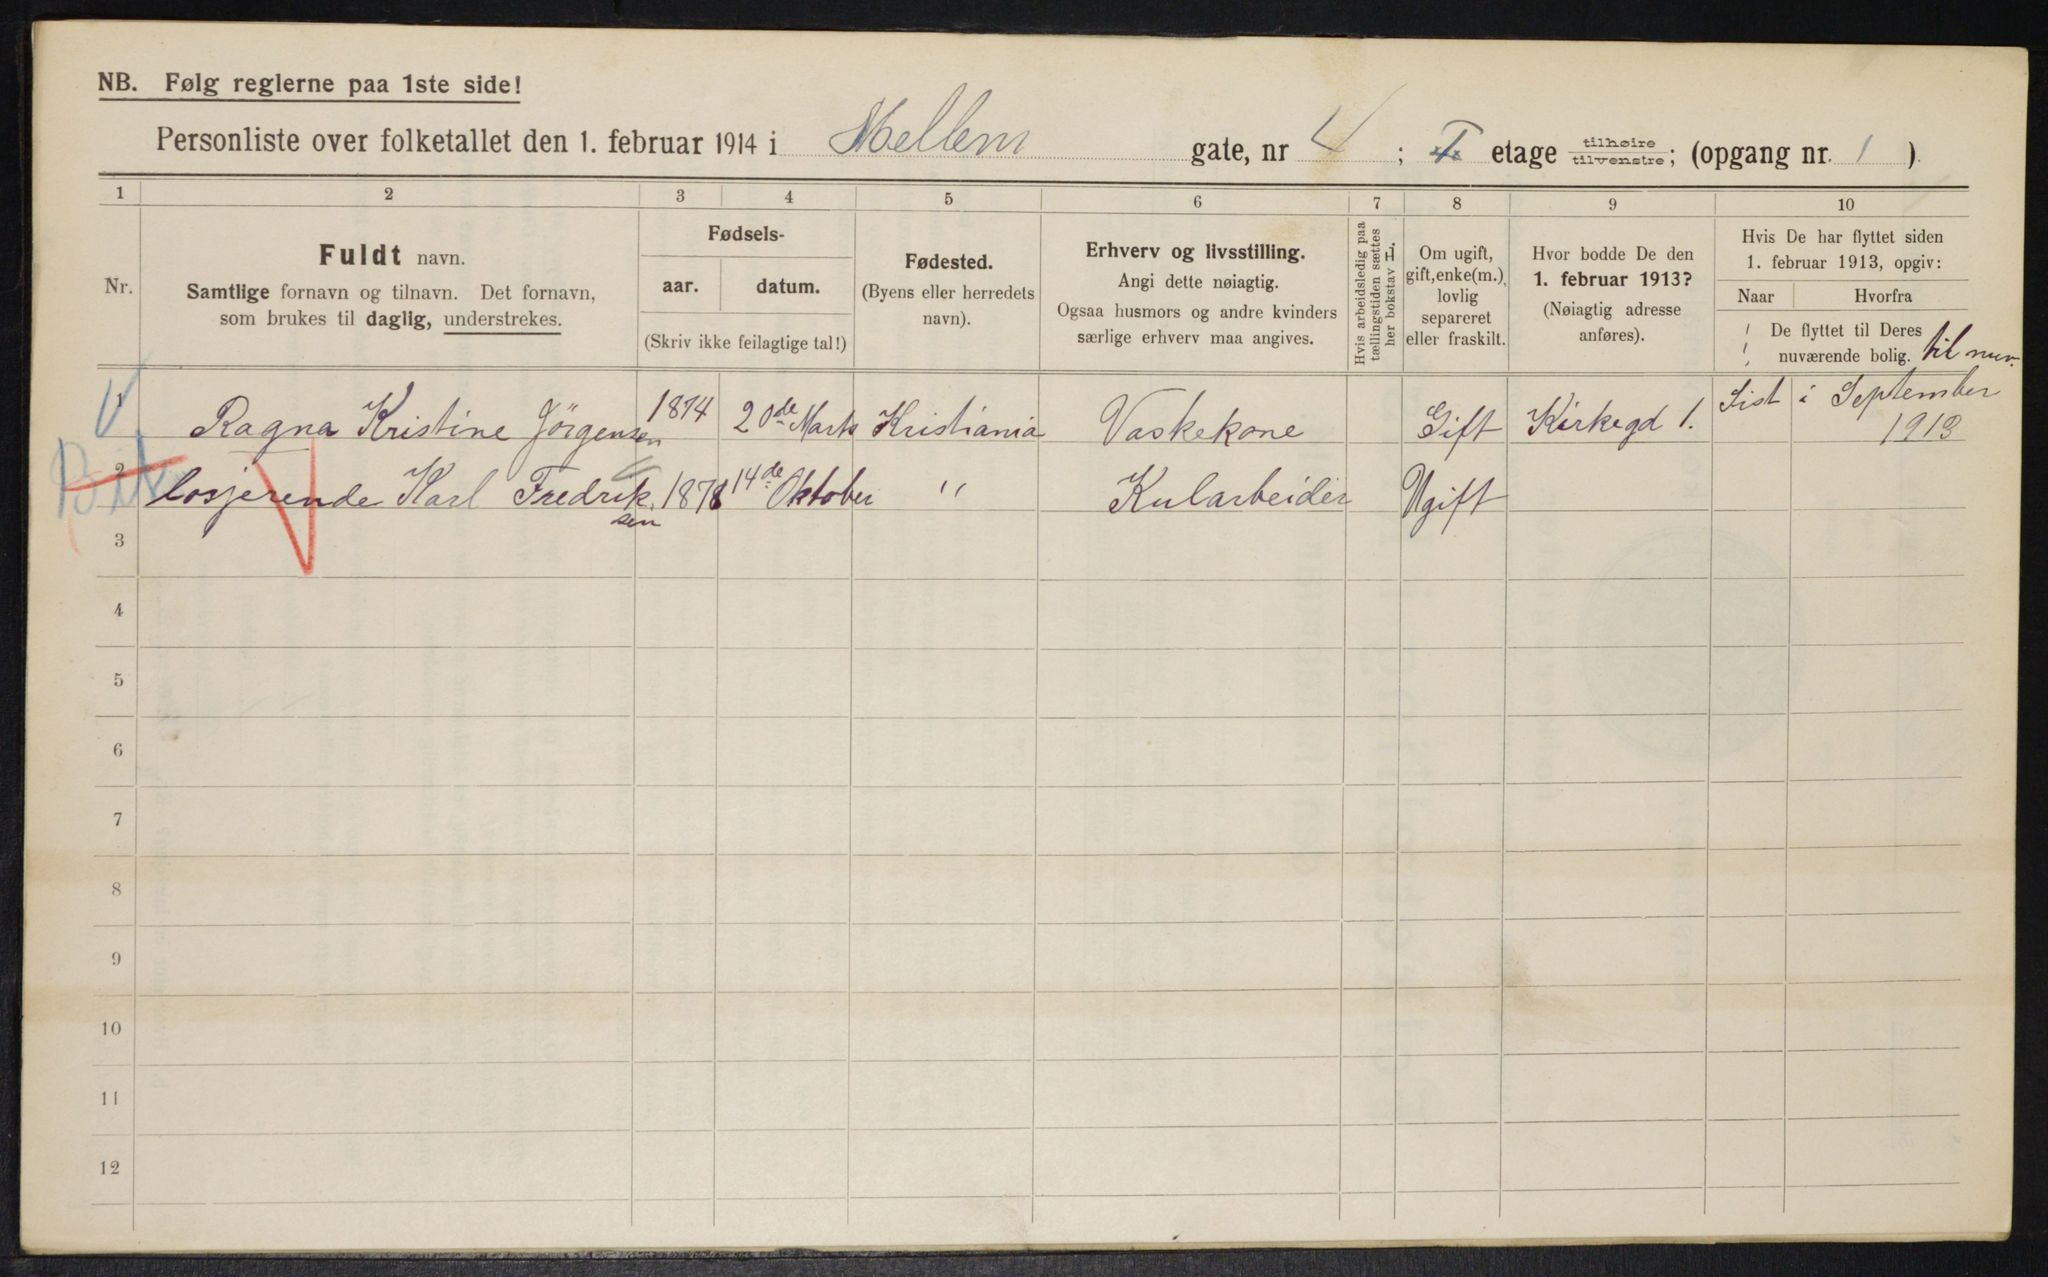 NB. Følg reglerne paa 1ste side!
Personliste over folketallet den 1. februar 1914 i Mellem gate, nr 4 ; I etage tilhøire tilvenstre; (opgang nr. 1 ).
1 2 3 4 5 6 7 8 9 10
Nr.
Fuldt navn.
Samtlige fornavn og tilnavn. Det fornavn,
som brukes til daglig, understrekes.
Fødsels-
aar. datum.
(Skriv ikke feilagtige tal!)
Fødested.
(Byens eller herredets
navn).
Erhverv og livsstilling.
Angi dette nøiagtig.
Ogsaa husmors og andre kvinders
særlige erhverv maa angives.
Hvis arbeidsledig paa
tællingstiden sættes
her bokstav L.
Om ugift,
gift, enke(m.),
lovlig
separeret
eller fraskilt.
Hvor bodde De den
1. februar 1913?
(Nøiagtig adresse
anføres).
Hvis De har flyttet siden
1. februar 1913, opgiv:
Naar Hvorfra
De flyttet til Deres
nuværende bolig. til nuv.
1 Ragna Kristine Jörgensen 1874 20de Marts Kristiania Vaskekone Gift Kirkegd 1. Sist i September
1913
2 losjerende Karl Fredriksen 1878 14de Oktober " Kularbeider Ugift
3
4
5
6
7
8
9
10
11
12